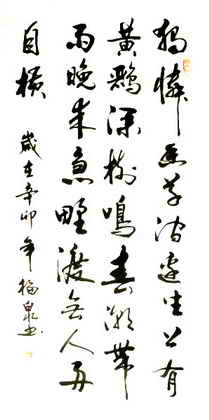 獨憐幽草澗邊生上有
黃鸝深樹鳴春潮帶
雨晚來急野渡無人舟
自橫
歲在辛卯年福泉書